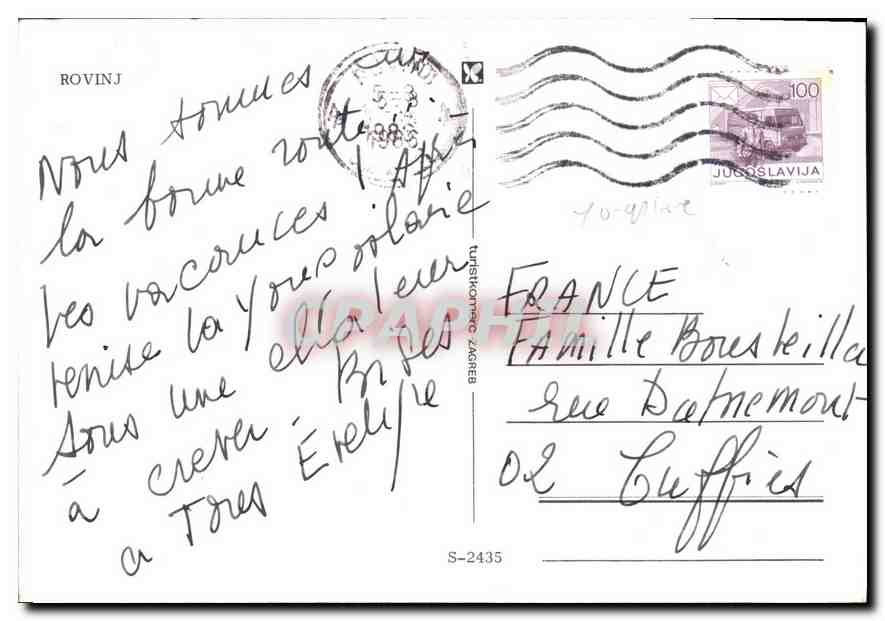 ROVINJ
Nous sommes sur
la bonne route
des vacances ! Après
Venise la Yougoslavie
sous une chaleur
à crever. Bises
a Tous Evelyne
100
JUGOSLAVIJA
turistkomerc ZAGREB
CPAPHIL
FRANCE
Famille Bousteilla
rue
02 Cuffies
S-2435